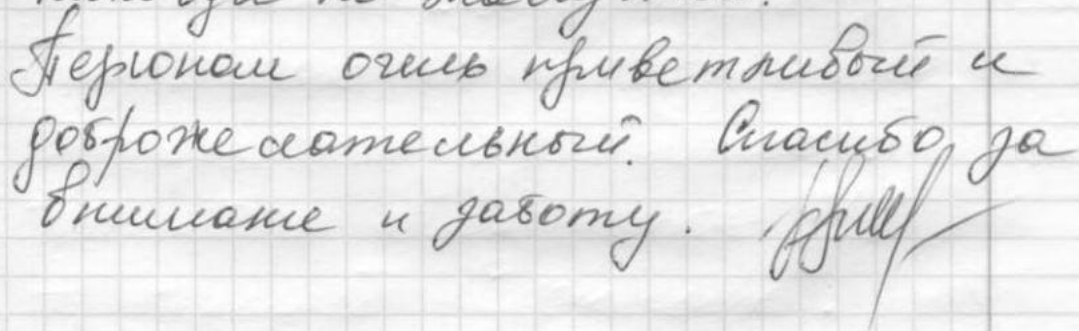 Персонал очень приветливый и
доброжелательный. Спасибо за
внимание и заботу.